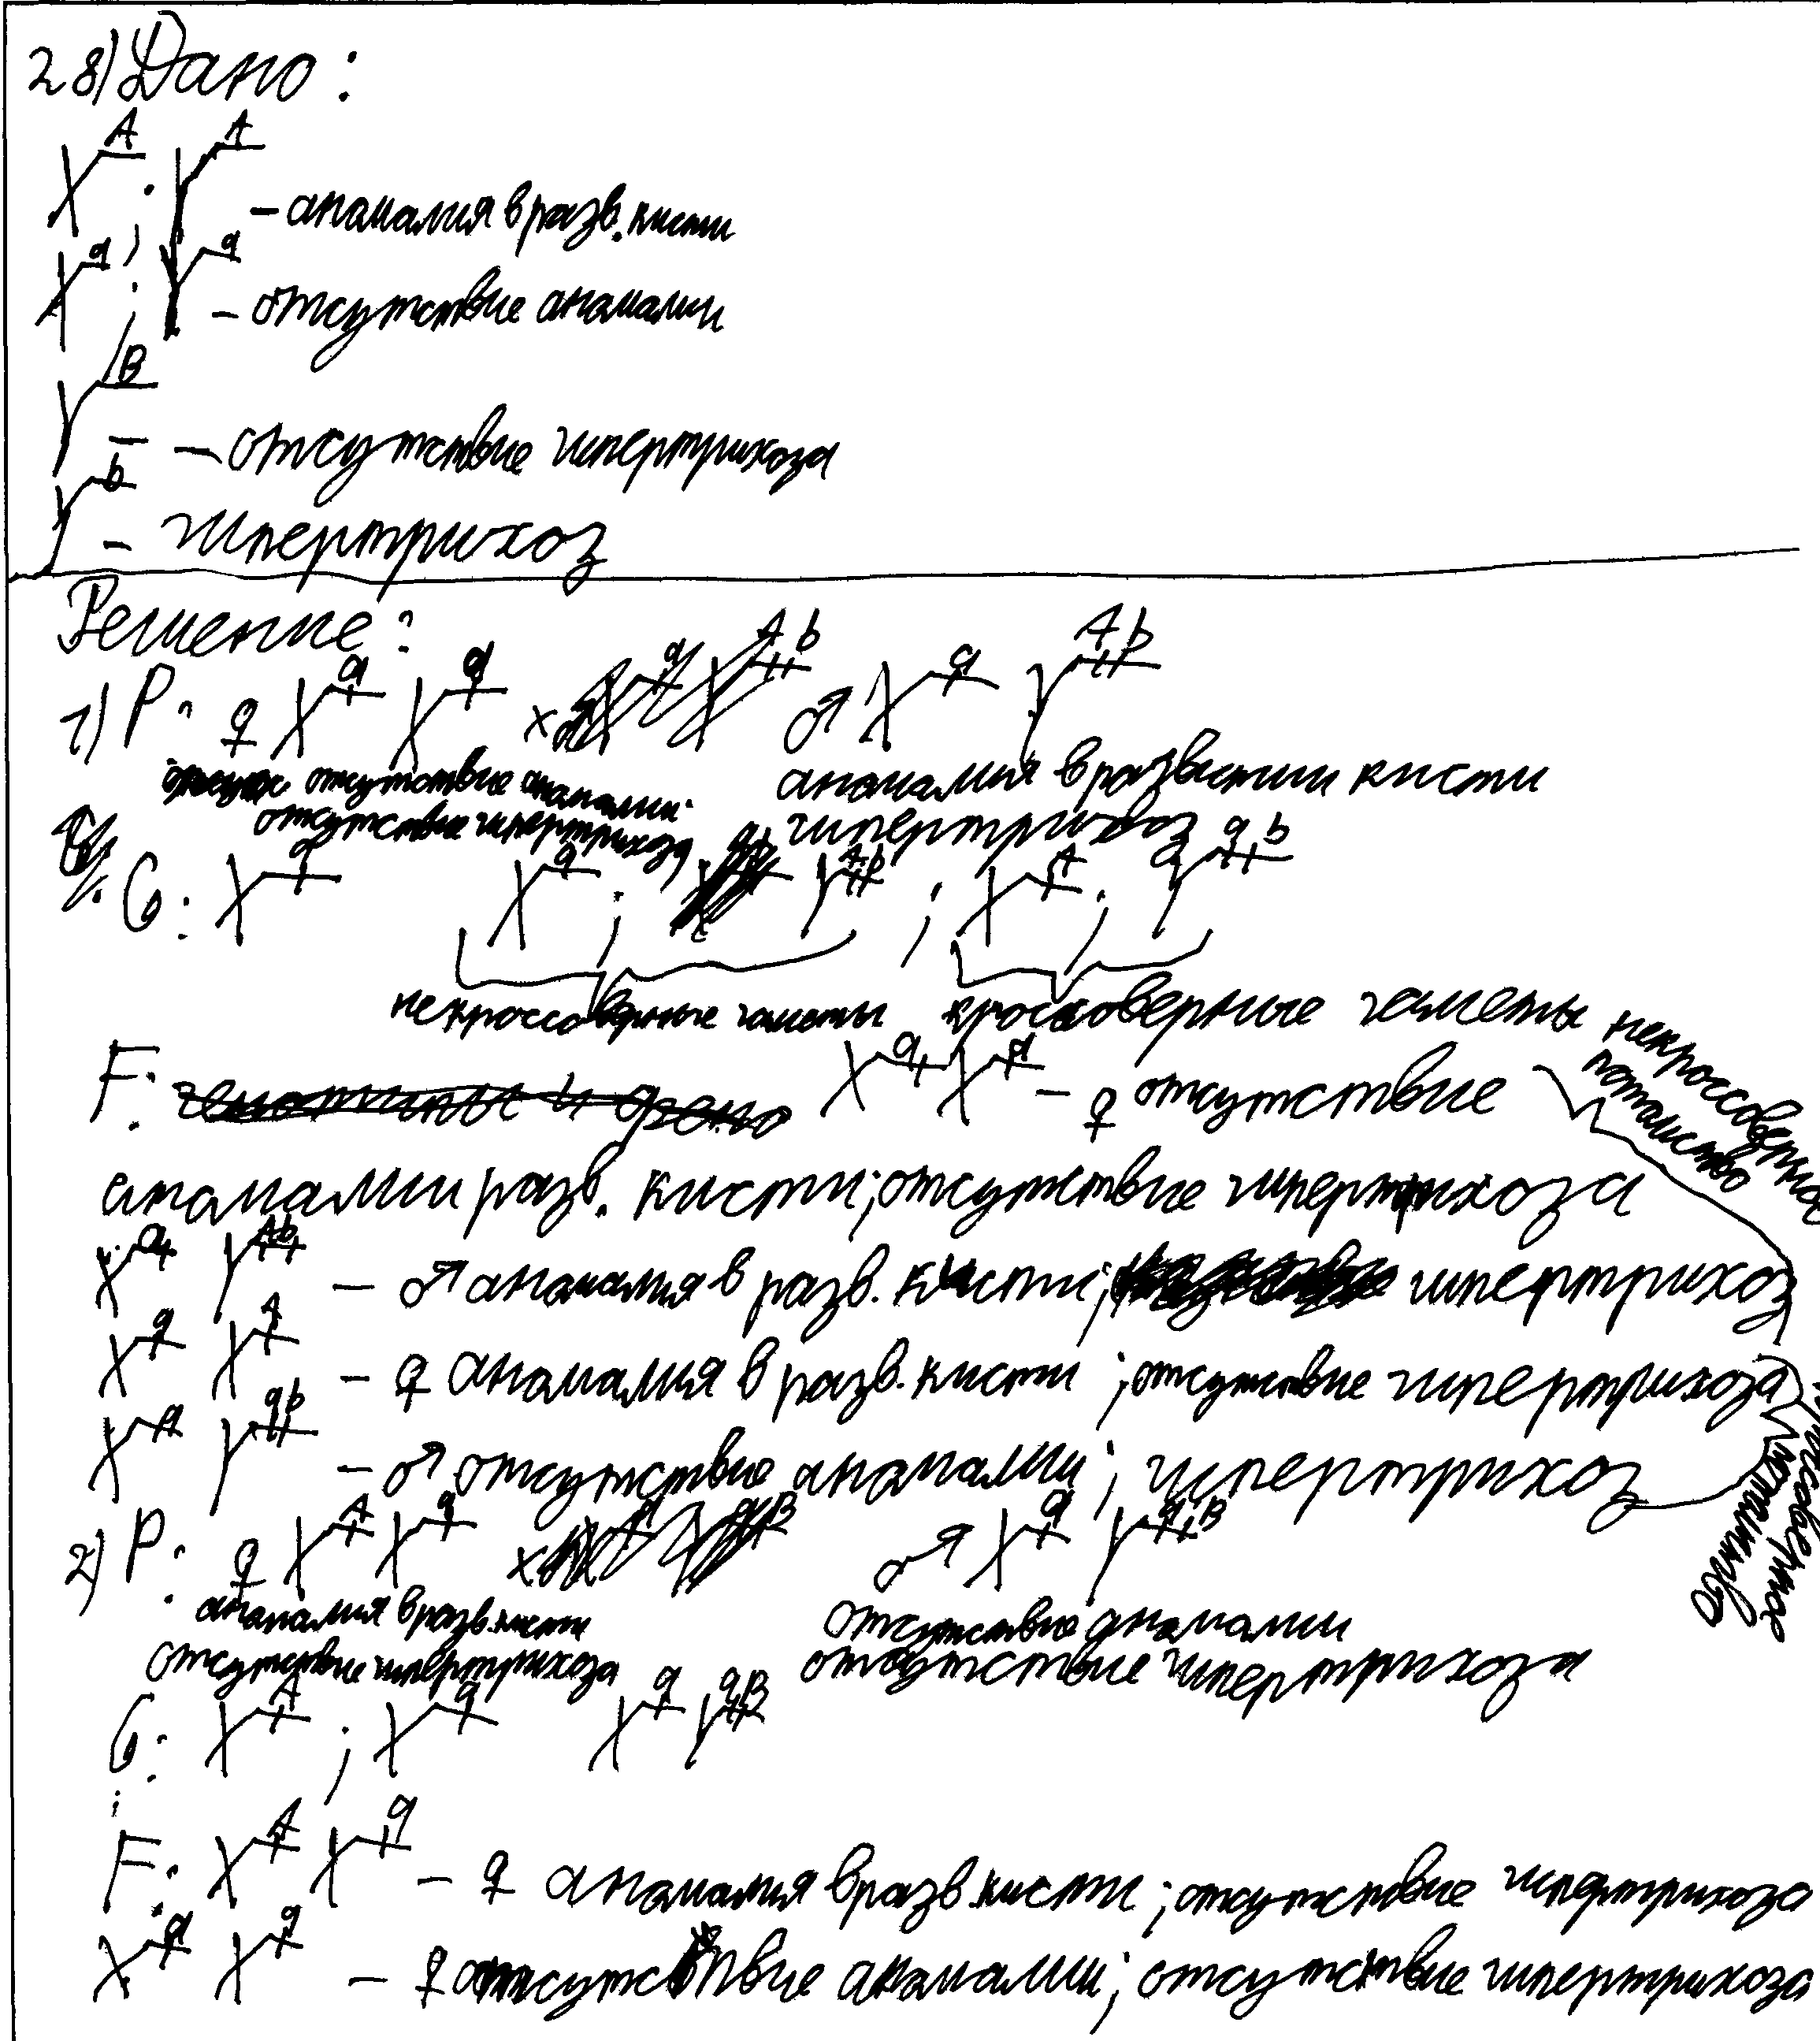 28) Дано:
X^A; Y^A - анамалия в разв. кисти
X^a; Y^a - отсутствие анамалии
Y^B - - отсутствие гипертрихоза
Y^b - гипертрихоз
Решение:
1) P: ♀ X^a X^a x ♂ X^a Y^Ab
отсутствие анамалии анамалия в развитии кисти
отсутствие гипертрихоза гипертрихоз
G: X^a X^a; Y^Ab; X^A; Y^ab
некроссоверные гаметы кроссоверные гаметы
F: X^a X^a - ♀ отсутствие
некроссоверное
потомство
анамалии разв. кисти; отсутствие гипертрихоза
X^a Y^Ab - ♂ анамалия в разв. кисти; гипертрихоз
X^a X^A - ♀ анамалия в разв. кисти; отсутствие гипертрихоза
X^a Y^ab - ♂ отсутствие анамалии; гипертрихоз
кроссоверное
потомство
2) P: ♀ X^A X^a x ♂ X^a Y^aB
анамалия в разв. кисти отсутствие анамалии
отсутствие гипертрихоза отсутствие гипертрихоза
G: X^A; X^a X^a Y^aB
F: X^A X^a - ♀ анамалия в разв. кисти; отсутствие гипертрихоза
X^a X^a - ♀ отсутствие анамалии; отсутствие гипертрихоза